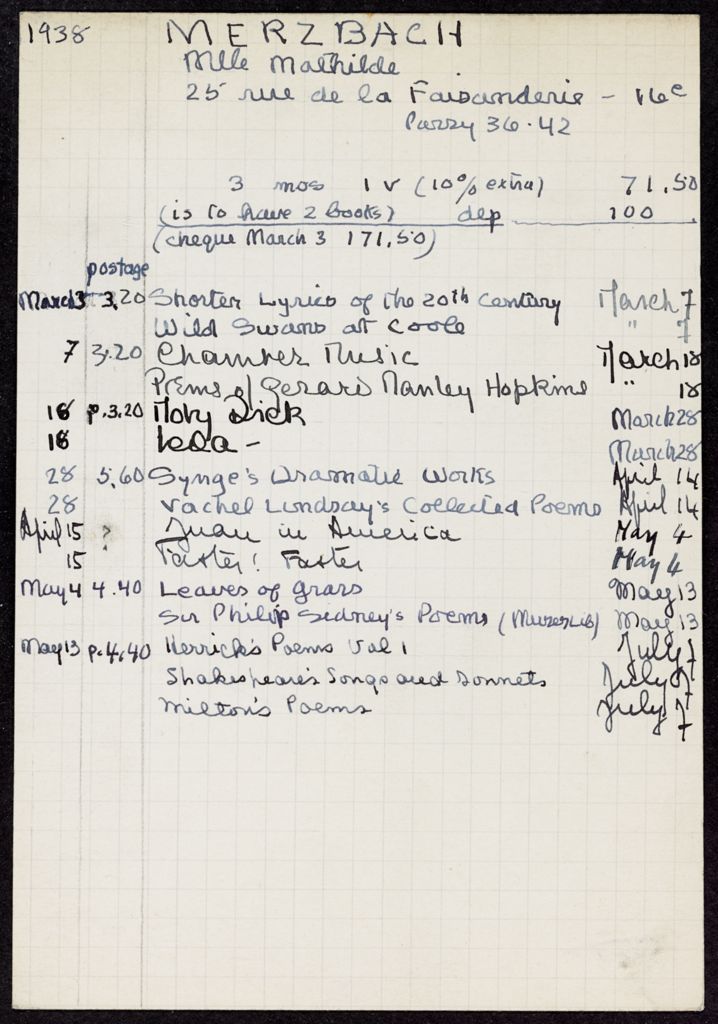 1938 MERZBACH
Mlle Mathilde
25 rue de la Faisanderie - 16e
Passy 36.42
3 mos 1 v (10% extra) 71.50
(is to have 2 books) dep 100.
(cheque March 3 171,50)
postage
March 3 3.20 Shorter Lyrics of the 20th Century March 7
Wild Swans at Coole " 7
7 3.20 Chamber Music March 18
Poems of Gerard Manley Hopkins " 18
18 p.3.20 Moby Dick March 28
18 Leda - March 28
28 5.60 Synge's Dramatic Works April 14
28 Vachel Lindsay's Collected Poems April 14
April 15 ? Juan in America May 4
15 Faster! Faster May 4
May 4 4.40 Leaves of Grass May 13
Sir Philip Sidney's Poems (Muses Lib) May 13
May 13 p.4.40 Herrick's Poems Vol 1 July 7
Shakespeare's Songs and Sonnets July 7
Milton's Poems July 7